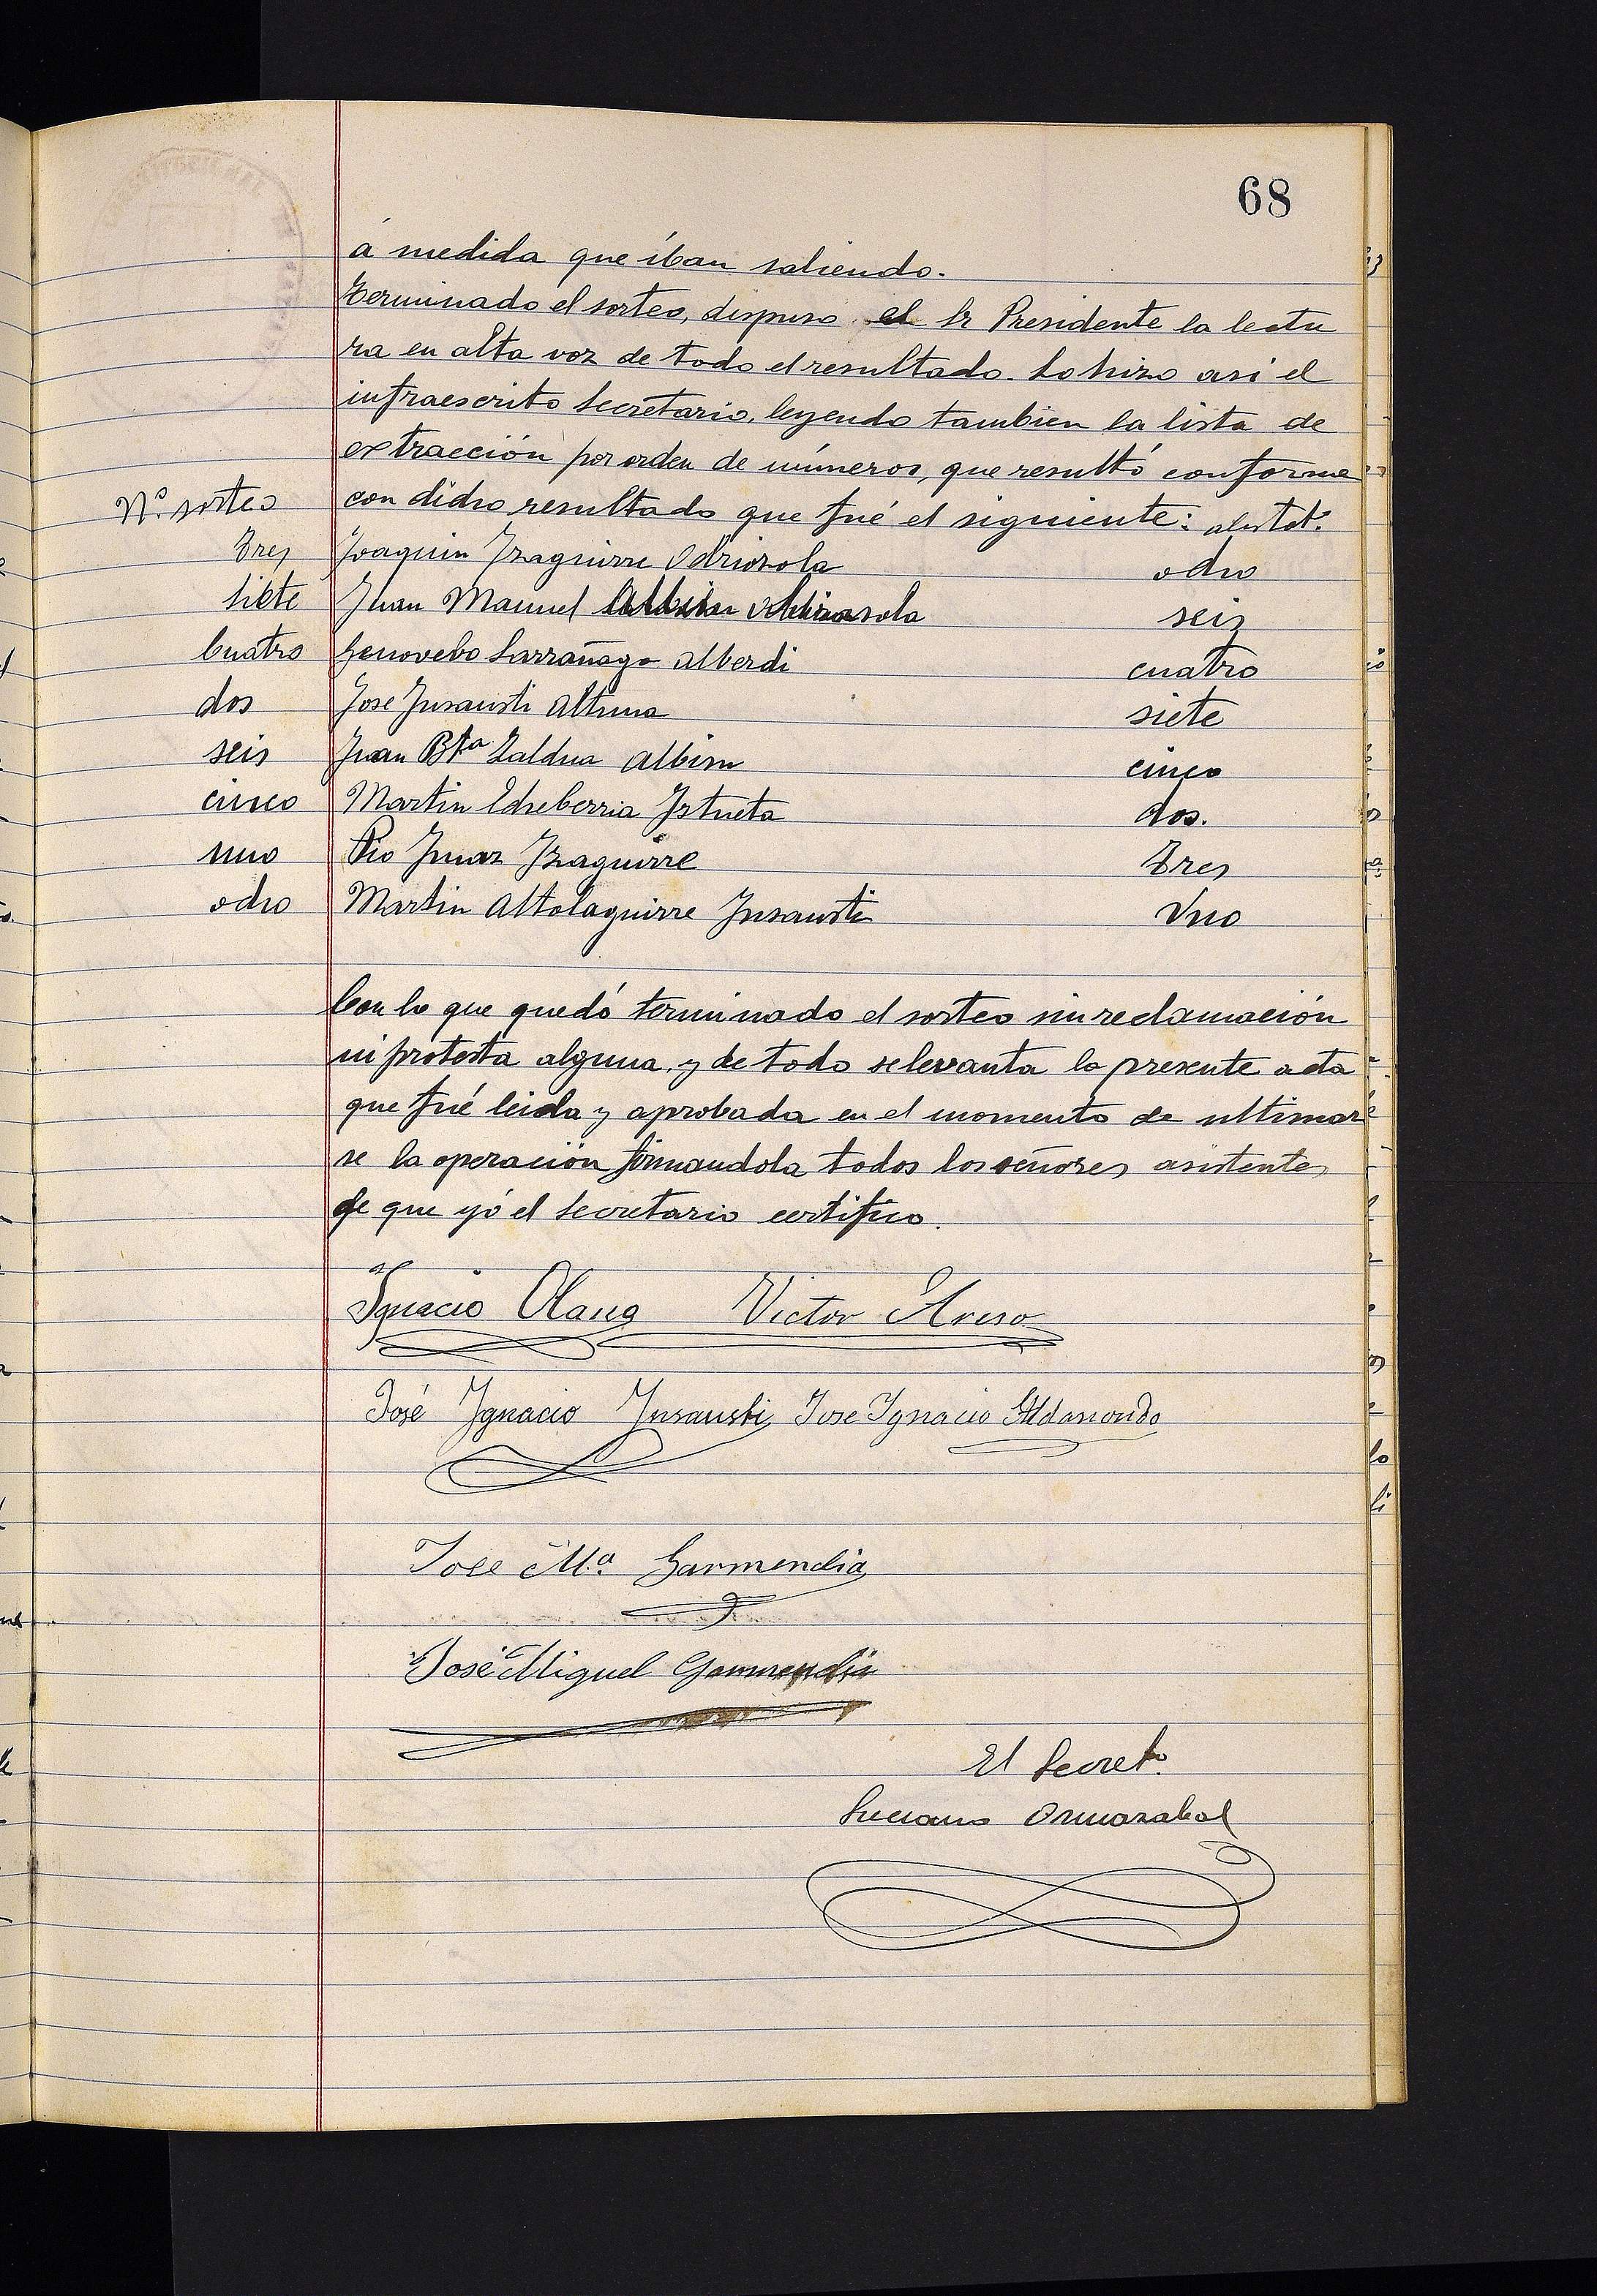 68
á medida que iban saliendo.
Terminado el sorteo, dispuso el Sr Presidente la lectu
ra en alta voz de todo el resultado. Lo hizo asi el
infraescrito Secretario, leyendo tambien la lista de
extracción por orden de números, que resultó conforme
Nº sorteo con dicho resultado que fué el siguiente:
Tres Joaquin Izaguirre Odriozola ocho
Siete Juan Manuel seis
Cuatro Genovebo Larrañaga Alberdi cuatro
dos Jose Insausti Altuna siete
seis Juan Bta Zaldua Albisu cinco
cinco Martin Echeberria Iztueta dos.
uno Pio Izaguirre Tres
ocho Martin Altolaguirre Insausti Uno
Con lo que quedó terminado el sorteo sin reclamación
ni protesta alguna, y de todo se levanta la presente acta
que fué leida y aprobada en el momento de ultimar
se la operación firmandola todos los señores asistentes
de que yó el Secretario certifico.
Ygnacio Olano Victor
José Ygnacio Insausti Jose Ygnacio Aldasoro
Jose Mª Garmendia
José Miguel Garmendia
El Secret.º
Luciano Ormazabal